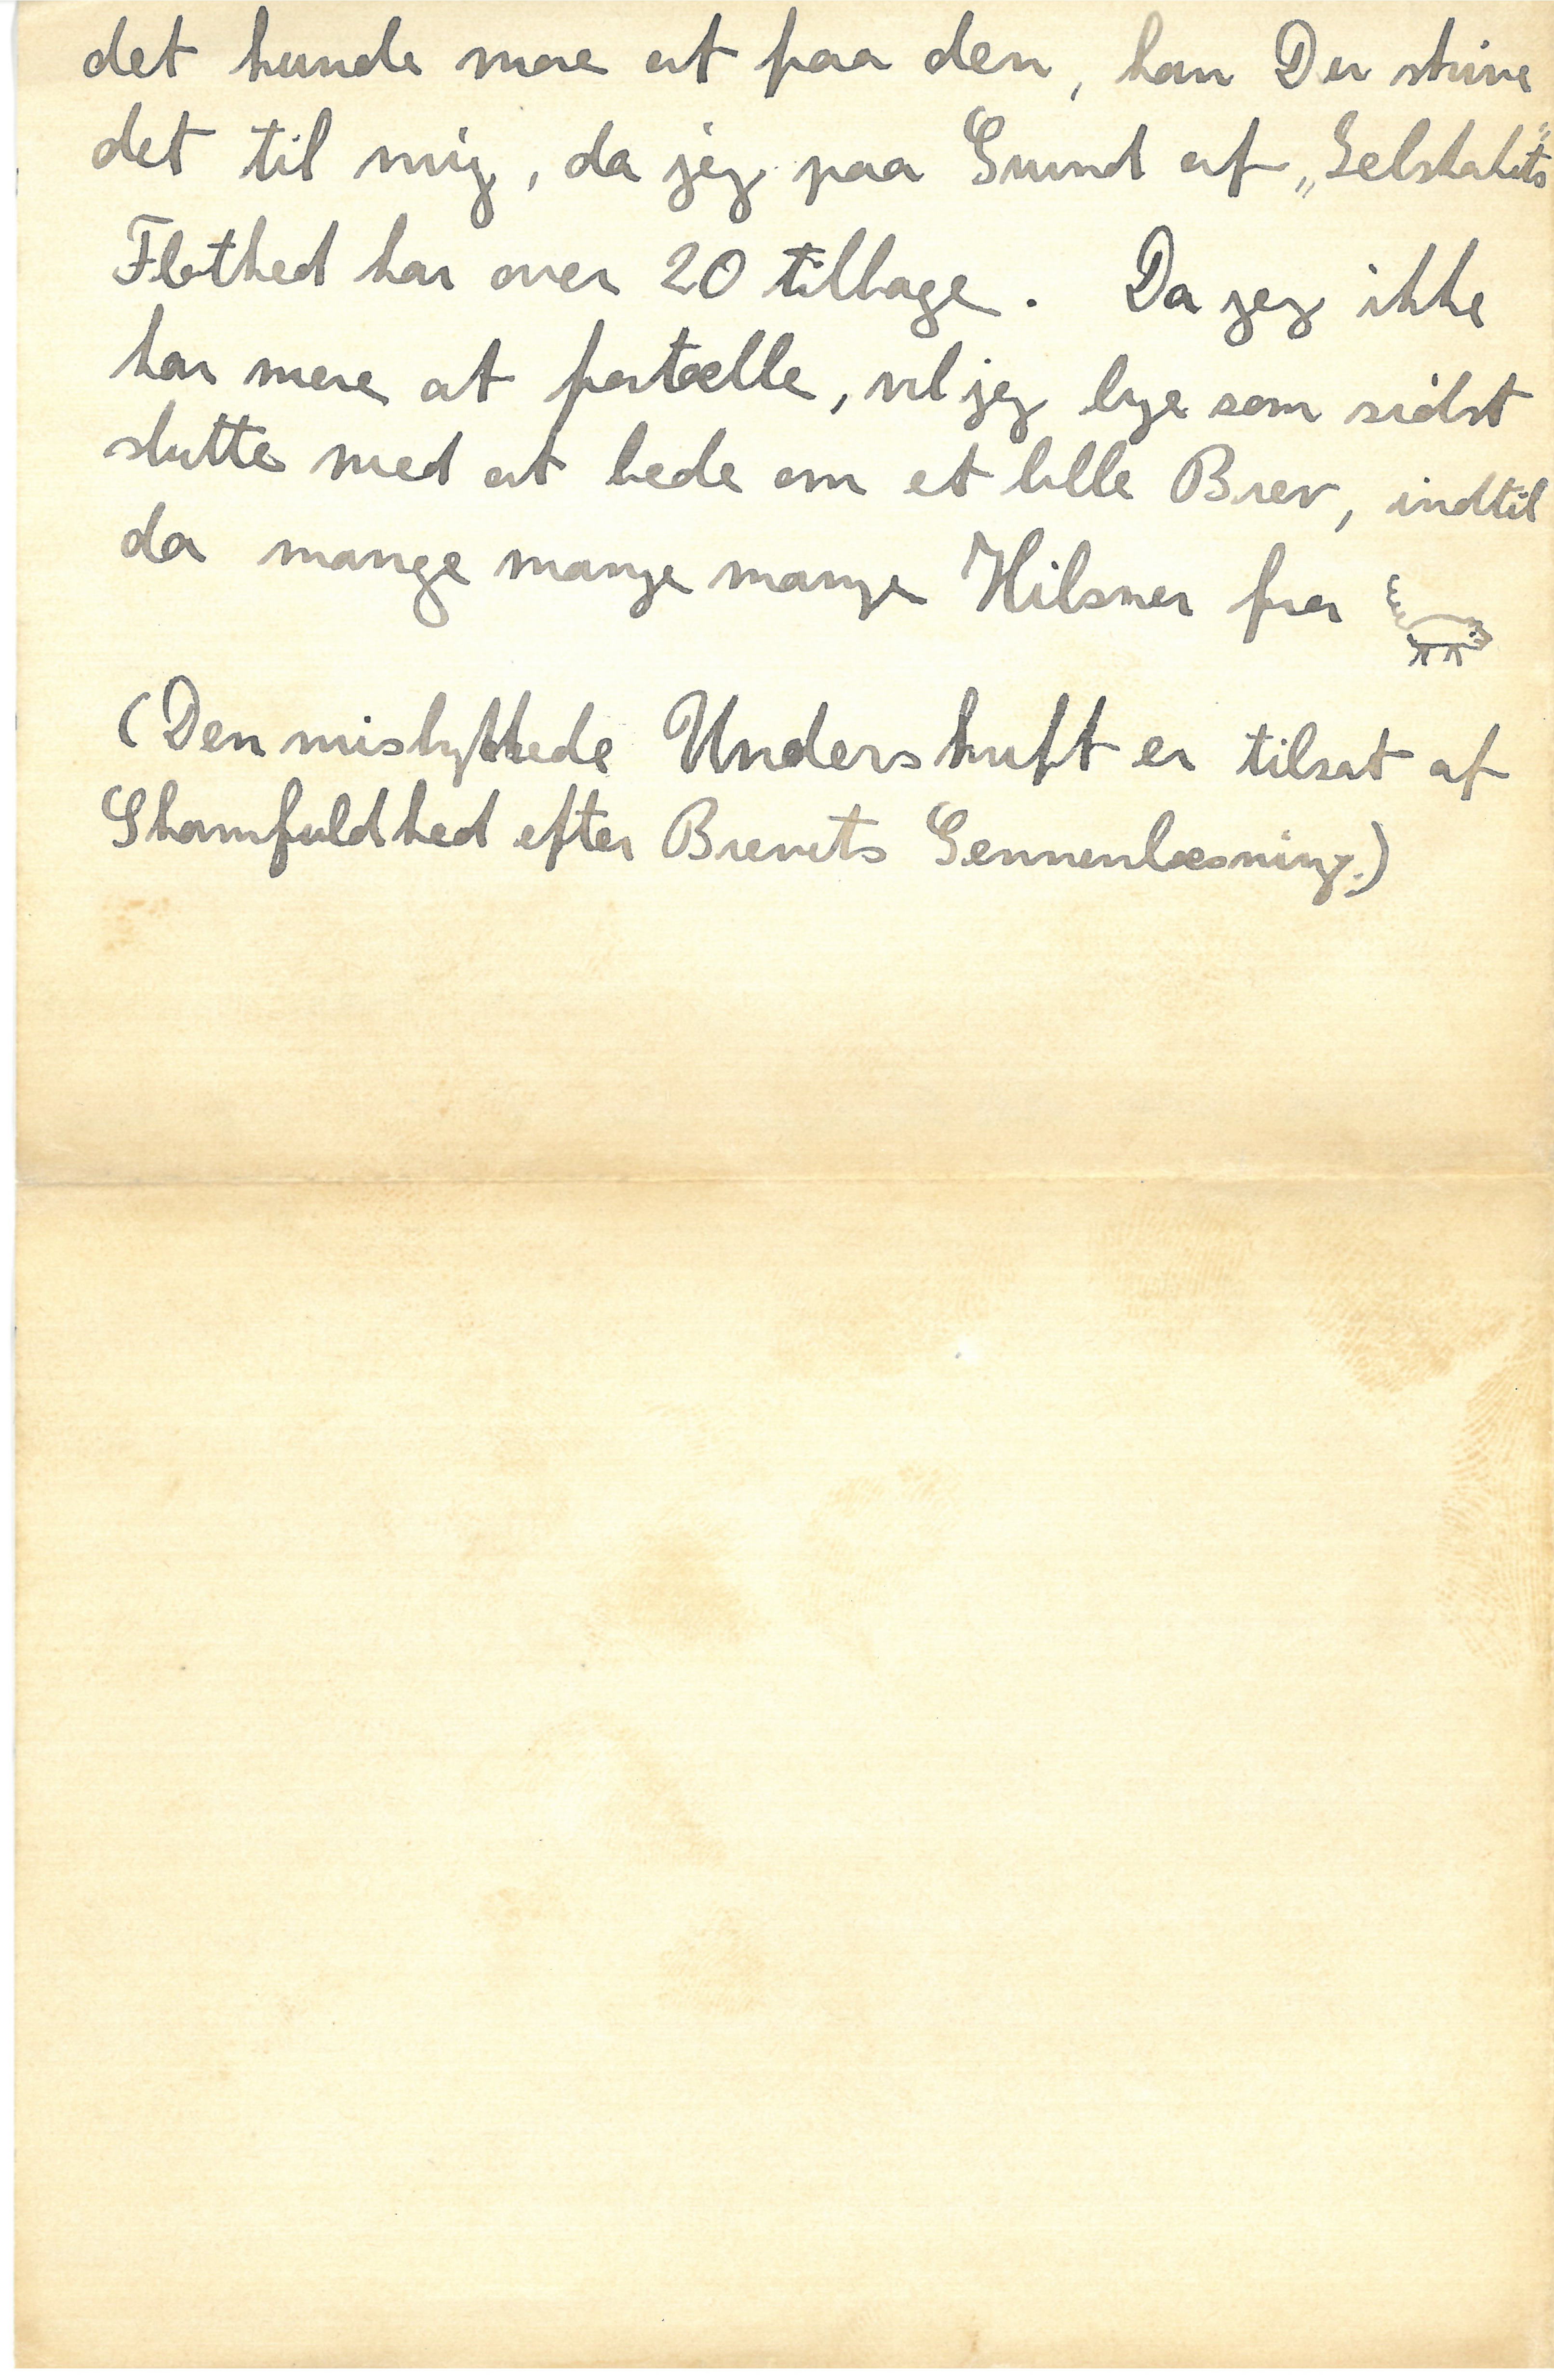 det kunde more at faa den, kan Du skrive
det til mig, da jeg paa Grund af „Selskabets“
Flothed har over 20 tilbage. Da jeg ikke
har mere at fortælle, vil jeg lige som sidst
slutte med at bede om et lille Brev, indtil
da mange mange mange Hilsner fra
(Den mislykkede Underskrift er tilsat af
Skamfuldhed efter Brevets Gennemlæsning.)